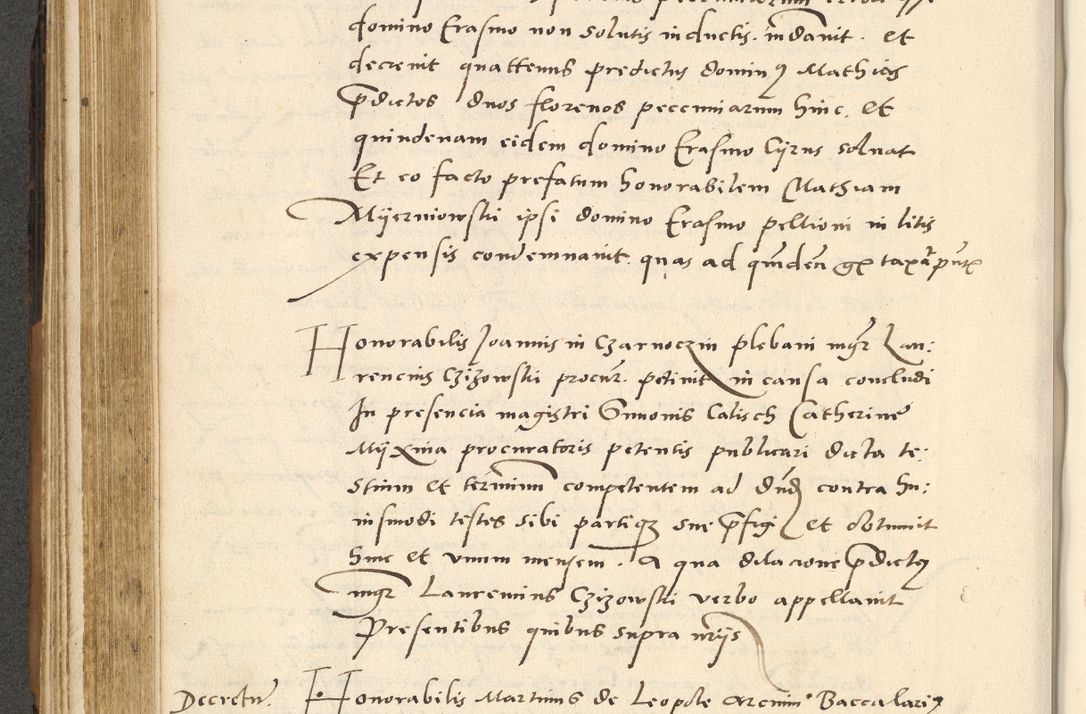 domino Erasmo non solutis inductis. mdavit. et
decrevit quattenus predictus dominus Mathias
pdictos duos florenos pecuniarum hinc. Et
quindenam eidem domino Erasmo Cijrus solvat
Et eo facto prefatum honorabilem Mathiam
Mijerniowski ipsi domino Erasmo pellioni in litis
expensis condemnavit quas ad qmdem gr taxa
Honorabilis Joannis in Czarnoczin plebani mgr Lau:
rencius Czizowski procur. petivit in causa concludi
In presencia magistri Simonis Calisch Catherine
Mijxina procuratoris petentis publicari dicta te:
stium et terminum competentem ad dnd contra hu:
iusmodi testes sibi partique sue pfigi et obtinuit
hinc et unum mensem. A qua dilacione pdictus
mgr Laurencius Czizowski verbo appellavit
Presentibus quibus supra nriis
Decretu. Honorabilis Martinus de Leopole arcium Baccalarius